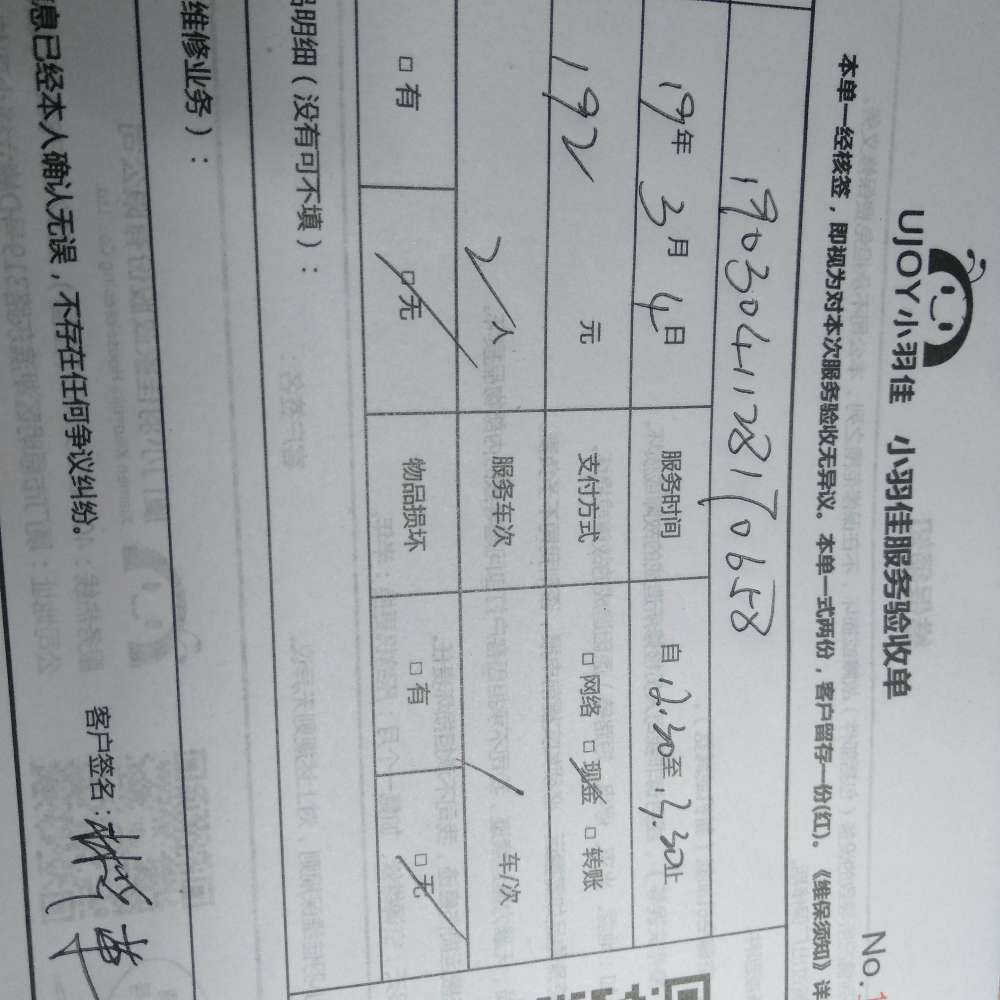 UJOY小羽佳 小羽佳服务验收单
No.
本单一经核签，即视为对本次服务验收无异议。本单一式两份，客户留存一份(红)。《维保须知》详
1903041128170658
19年3月4日 服务时间 自12.30至13.30止
192 元 支付方式 □网络 □现金 □转账
2人 服务车次 1 车/次
□有 □无 物品损坏 □有 □无
品明细（没有可不填）：
维修业务）：
息已经本人确认无误，不存在任何争议纠纷。 客户签名：